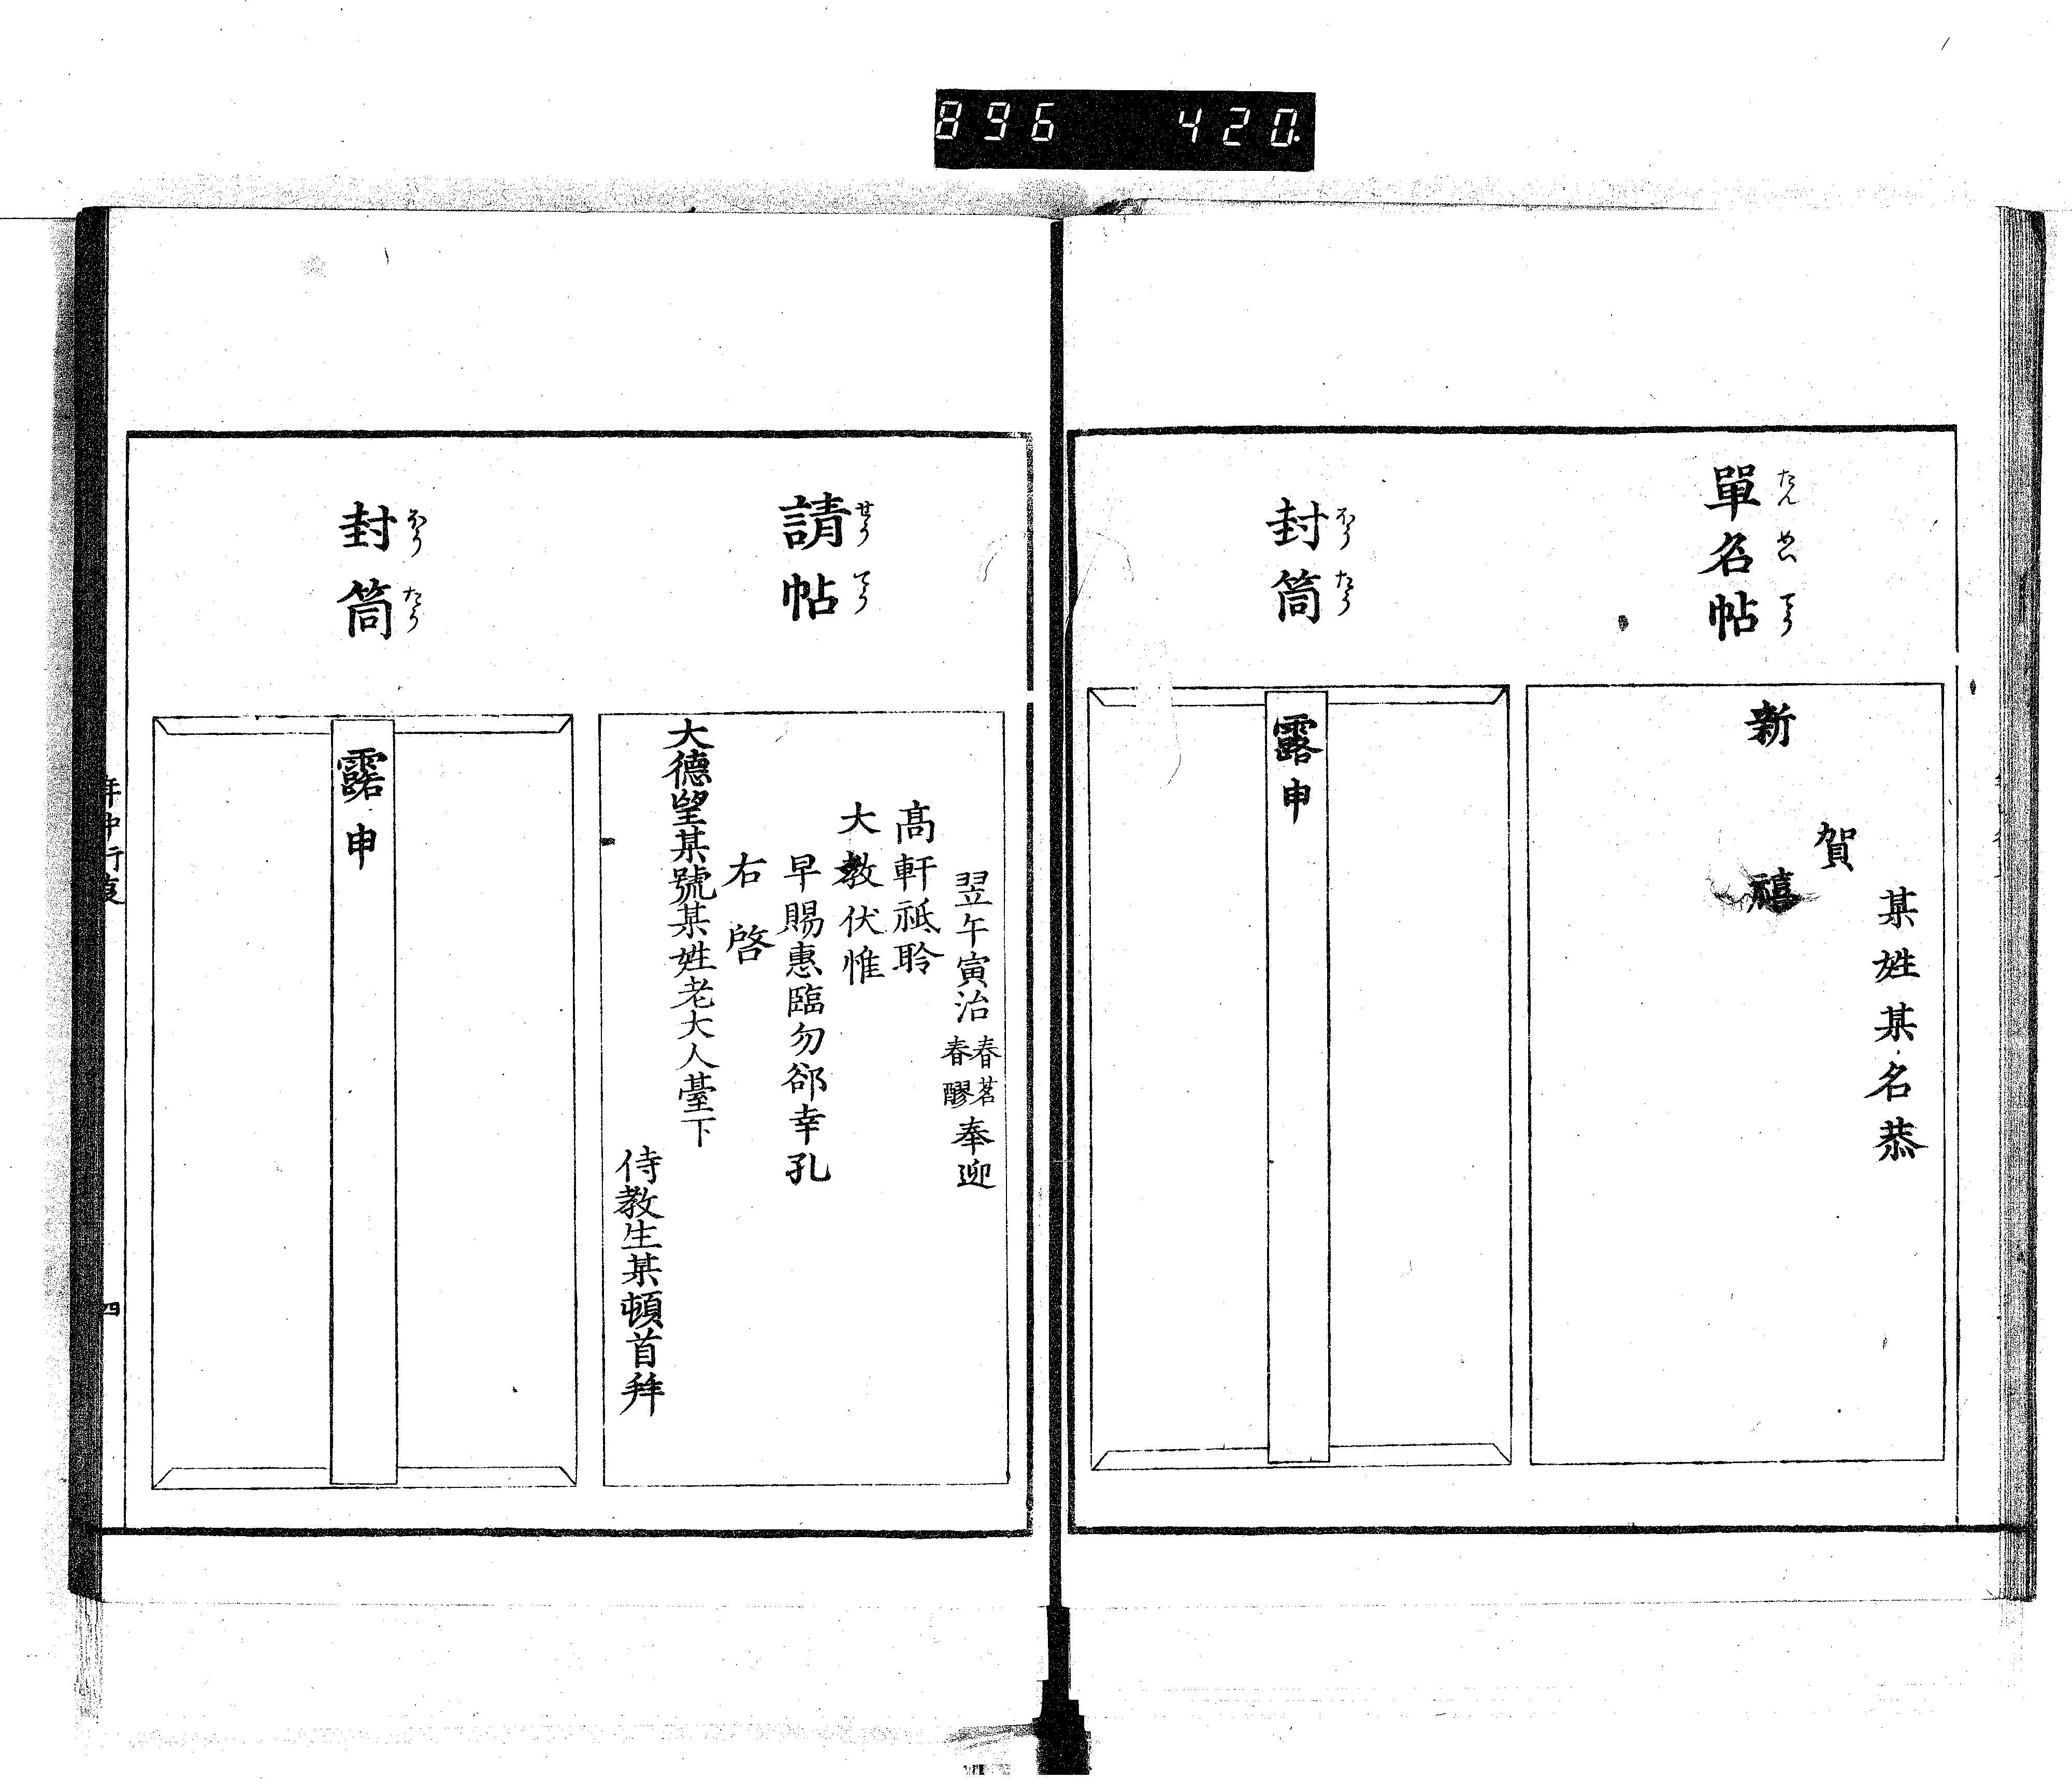 896 420.
單名帖
たんめいてう
某姓某名恭
賀
新
禧
封筒
ふうたう
露申
請帖
せうてう
翌午寅治春茗春醪奉迎
高軒祗聆
大教伏惟
早賜惠臨勿郤幸孔
右啓
大德望某號某姓老大人臺下
侍教生某頓首拜
封筒
ふうたう
露申
年中行夏
四